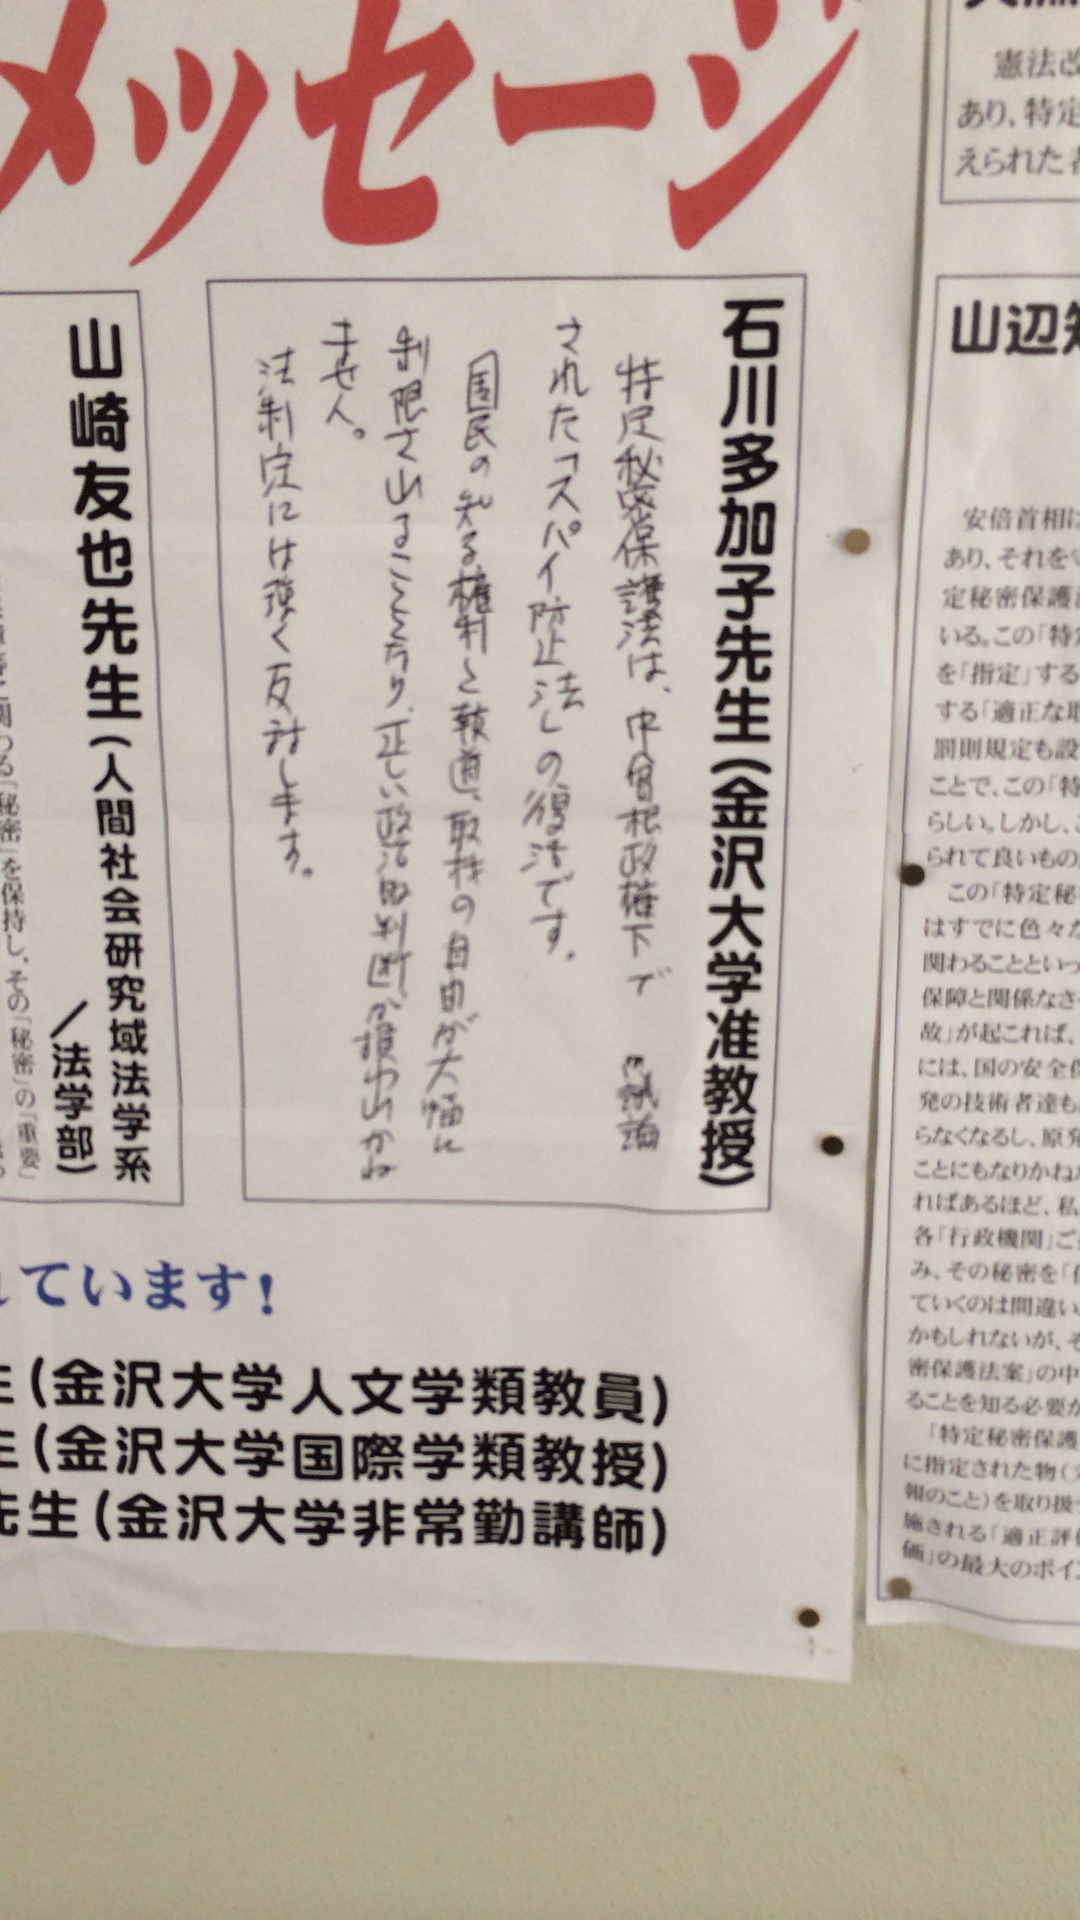 メッセージ
石川多加子先生(金沢大学准教授)
特定秘密保護法は、中曽根政権下で議論
された「スパイ防止法」の復活です。
国民の知る権利と報道、取材の自由が大幅に
制限されることとなり、正しい政治的判断が損われかね
ません。
法制定には強く反対します。
山崎友也先生(人間社会研究域法学系
/法学部)
関わる「秘密」を保持し、その「秘密」の「重要」
ています!
(金沢大学人文学類教員)
(金沢大学国際学類教授)
先生(金沢大学非常勤講師)
憲法改
あり、特定
えられた者
山辺
安倍首相は
あり、それを
定秘密保護
いる。この「特定
を「指定」する
する「適正な取
罰則規定も設
ことで、この「特
らしい。しかし、こ
られて良いもの
この「特定秘
はすでに色々な
関わることといっ
保障と関係なさ
故」が起これば、
には、国の安全保
発の技術者達も
らなくなるし、原発
ことにもなりかねな
ればあるほど、私
各「行政機関」ご
み、その秘密を「
ていくのは間違い
かもしれないが、そ
密保護法案」の中
ることを知る必要が
「特定秘密保護
に指定された物(文
報のこと)を取り扱
施される「適正評価
価」の最大のポイン